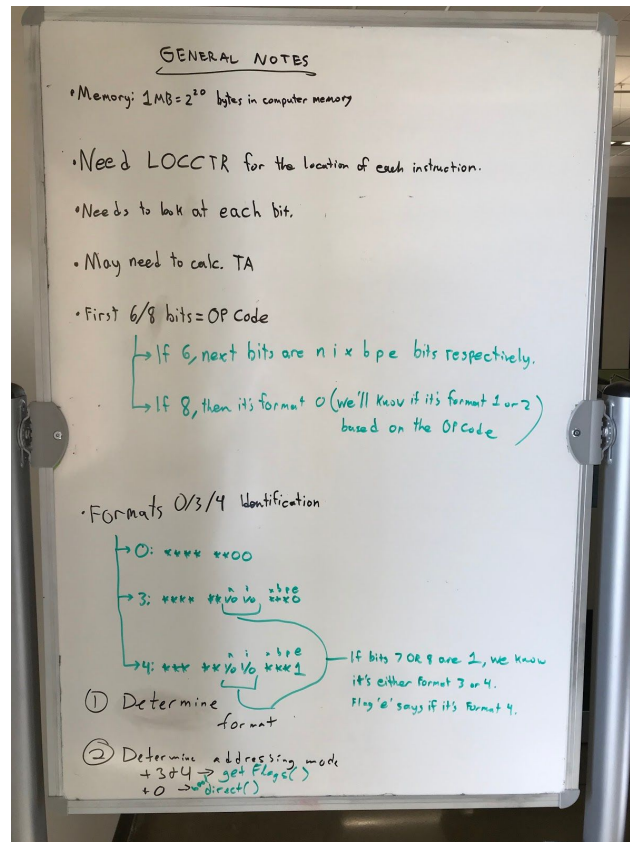 GENERAL NOTES
• Memory: 1MB = 2²⁰ bytes in computer memory
• Need LOCCTR for the location of each instruction.
• Needs to look at each bit.
• May need to calc. TA
• First 6/8 bits = OP Code
→ If 6, next bits are n i x b p e bits respectively.
→ If 8, then it's format 0 (we'll know if it's format 1 or 2
based on the OP Code)
• Formats 0/3/4 Identification
→ 0: **** **00
n i x b p e
→ 3: **** ** 1/0 1/0 ***0
n i x b p e
→ 4: *** ** 1/0 1/0 ***1
If bits 7 OR 8 are 1, we know
it's either format 3 or 4.
Flag 'e' says if it's format 4.
① Determine
format
② Determine addressing mode
+ 3&4 → get Flags()
+ 0 → direct()